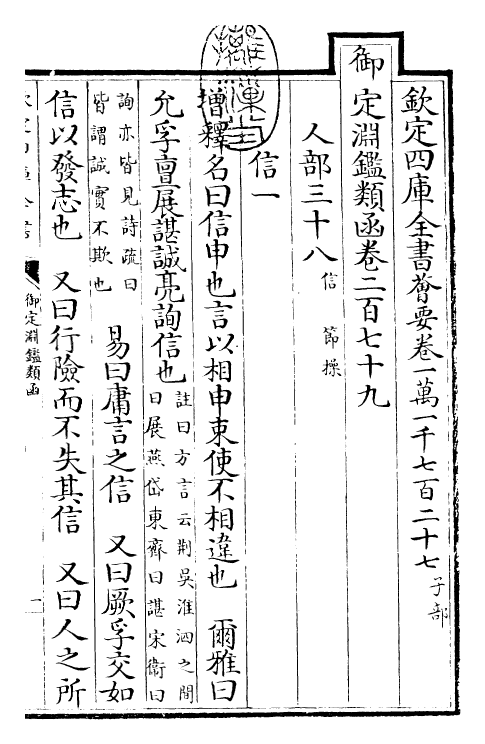 欽定四庫全書薈要卷一萬一千七百二十七 子部
御定淵鑑類函卷二百七十九
人部三十八 信 節操
信一
增釋名曰信申也言以相申束使不相違也 爾雅曰
允孚亶展諶誠亮詢信也 註曰方言云荆吳淮泗之間
曰展燕岱東齊曰諶宋衛曰
詢亦皆見詩疏曰
皆謂誠實不欺也
易曰庸言之信 又曰厥孚交如
信以發志也 又曰行險而不失其信 又曰人之所
御定淵鑑類函
一